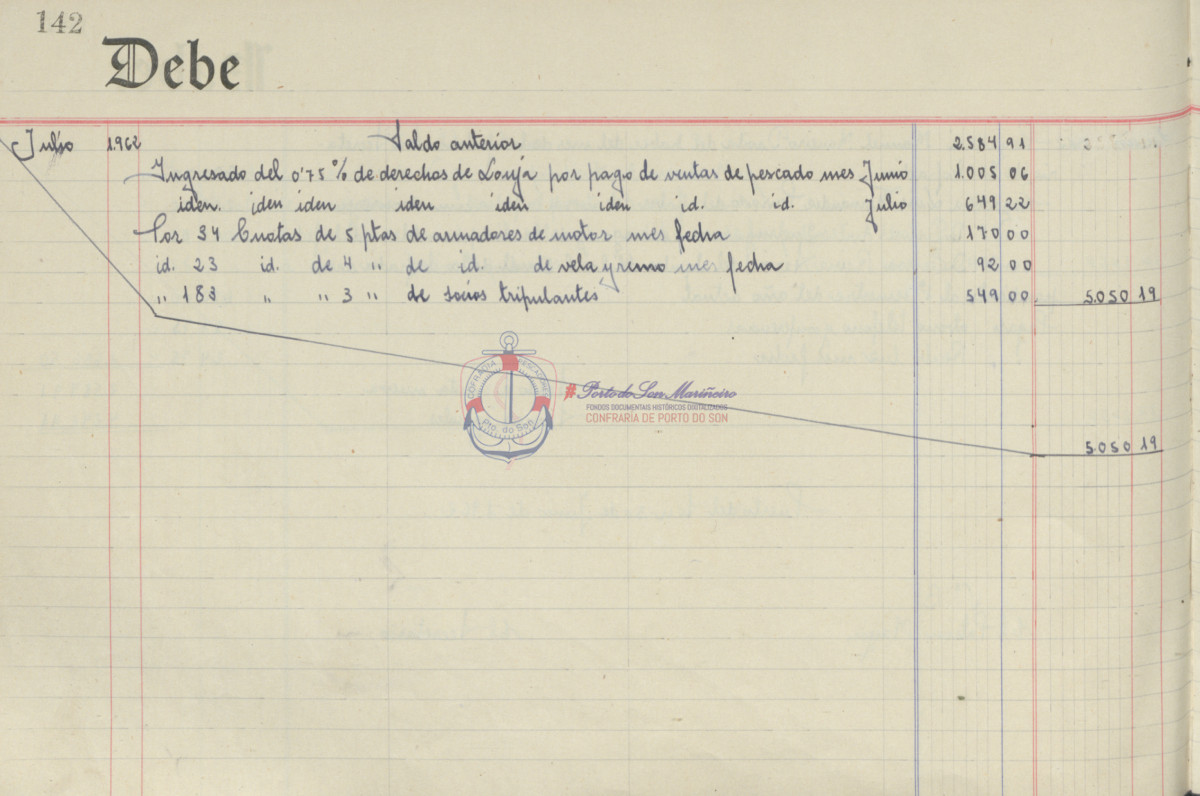 142
Debe
Julio 1.962 Saldo anterior 2.584 91
Ingresado del 0'75 % de derechos de Lonja por pago de ventas de pescado mes Junio 1.005 06
iden. iden iden iden iden iden id. id. Julio 649 22
Por 34 Cuotas de 5 ptas de armadores de motor mes fecha 170 00
id. 23 id. de 4 " de id. de vela y remo mes fecha 92 00
" 183 " " 3 " de socios tripulantes 549 00 5.050 19
COFRADÍA PESCADORES
Pto. do Son
# Porto do Son Mariñeiro
FONDOS DOCUMENTAIS HISTÓRICOS DIXITALIZADOS
CONFRARÍA DE PORTO DO SON
5.050 19